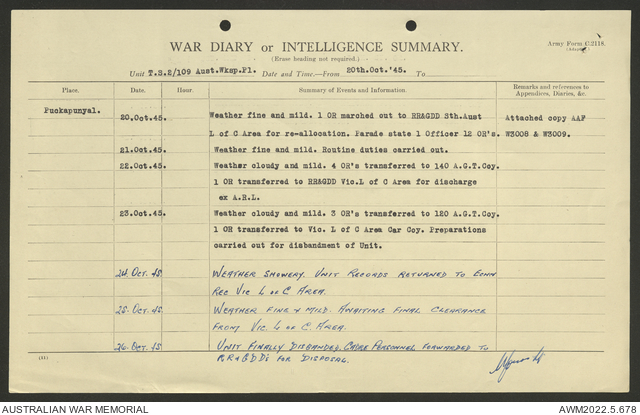 WAR DIARY or INTELLIGENCE SUMMARY.
(Erase heading not required.)
Army Form C.2118.
(Adapted)
Unit T.S.2/109 Aust.Wksp.Pl. Date and Time:—From 20th.Oct.'45. To
Place. Date. Hour. Summary of Events and Information. Remarks and references to Appendices, Diaries, &c.
Puckapunyal.
20.Oct.45. Weather fine and mild. 1 OR marched out to RR&GDD Sth.Aust Attached copy AAF
L of C Area for re-allocation. Parade state 1 Officer 12 OR's. W3008 & W3009.
21.Oct.45. Weather fine and mild. Routine duties carried out.
22.Oct.45. Weather cloudy and mild. 4 OR's transferred to 140 A.G.T.Coy.
1 OR transferred to RR&GDD Vic.L of C Area for discharge
ex A.R.L.
23.Oct.45. Weather cloudy and mild. 3 OR's transferred to 120 A.G.T.Coy.
1 OR transferred to Vic. L of C Area Car Coy. Preparations
carried out for disbandment of Unit.
24. Oct. 45 WEATHER SHOWERY. UNIT RECORDS RETURNED TO
REC VIC L OF C AREA.
25. Oct. 45 WEATHER FINE & MILD. AWAITING FINAL CLEARANCE
FROM VIC. L OF C. AREA.
26. Oct. 45 UNIT FINALLY DISBANDED. CADRE PERSONNEL FORWARDED TO
RR&GDD's FOR DISPOSAL.
AUSTRALIAN WAR MEMORIAL
AWM2022.5.678